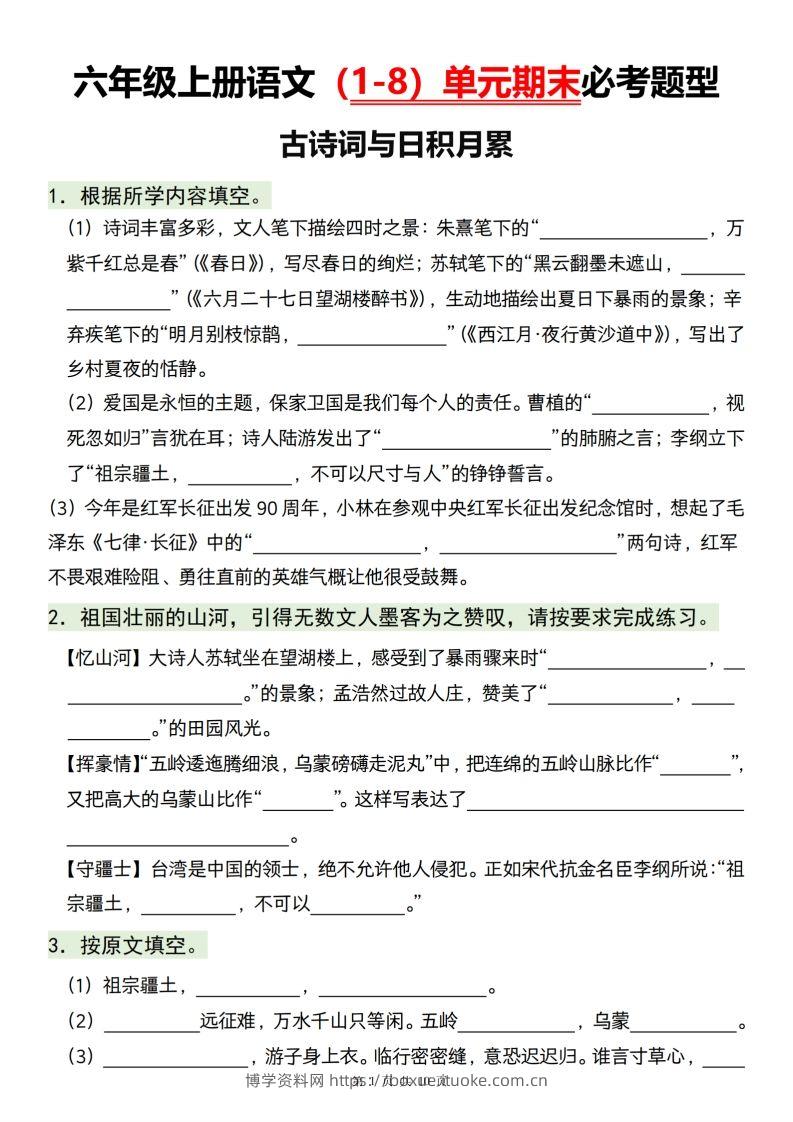 六年级上册语文（1-8）单元期末必考题型
古诗词与日积月累
1．根据所学内容填空。
（1）诗词丰富多彩，文人笔下描绘四时之景：朱熹笔下的“________________，万
紫千红总是春”（《春日》），写尽春日的绚烂；苏轼笔下的“黑云翻墨未遮山，______
__________”（《六月二十七日望湖楼醉书》），生动地描绘出夏日下暴雨的景象；辛
弃疾笔下的“明月别枝惊鹊，______________”（《西江月·夜行黄沙道中》），写出了
乡村夏夜的恬静。
（2）爱国是永恒的主题，保家卫国是我们每个人的责任。曹植的“___________，视
死忽如归”言犹在耳；诗人陆游发出了“________________”的肺腑之言；李纲立下
了“祖宗疆土，__________，不可以尺寸与人”的铮铮誓言。
（3）今年是红军长征出发 90 周年，小林在参观中央红军长征出发纪念馆时，想起了毛
泽东《七律·长征》中的“________________，________________”两句诗，红军
不畏艰难险阻、勇往直前的英雄气概让他很受鼓舞。
2．祖国壮丽的山河，引得无数文人墨客为之赞叹，请按要求完成练习。
【忆山河】大诗人苏轼坐在望湖楼上，感受到了暴雨骤来时“_______________，__
________________。”的景象；孟浩然过故人庄，赞美了“____________，____
________。”的田园风光。
【挥豪情】“五岭逶迤腾细浪，乌蒙磅礴走泥丸”中，把连绵的五岭山脉比作“_______”，
又把高大的乌蒙山比作“_______”。这样写表达了__________________________
_____________________。
【守疆士】台湾是中国的领士，绝不允许他人侵犯。正如宋代抗金名臣李纲所说：“祖
宗疆土，_________，不可以_________。”
3．按原文填空。
（1）祖宗疆土，__________，________________。
（2）_________远征难，万水千山只等闲。五岭___________，乌蒙__________。
（3）______________，游子身上衣。临行密密缝，意恐迟迟归。谁言寸草心，____
博学资料网 https://boxueziliao.tuoke.com.cn